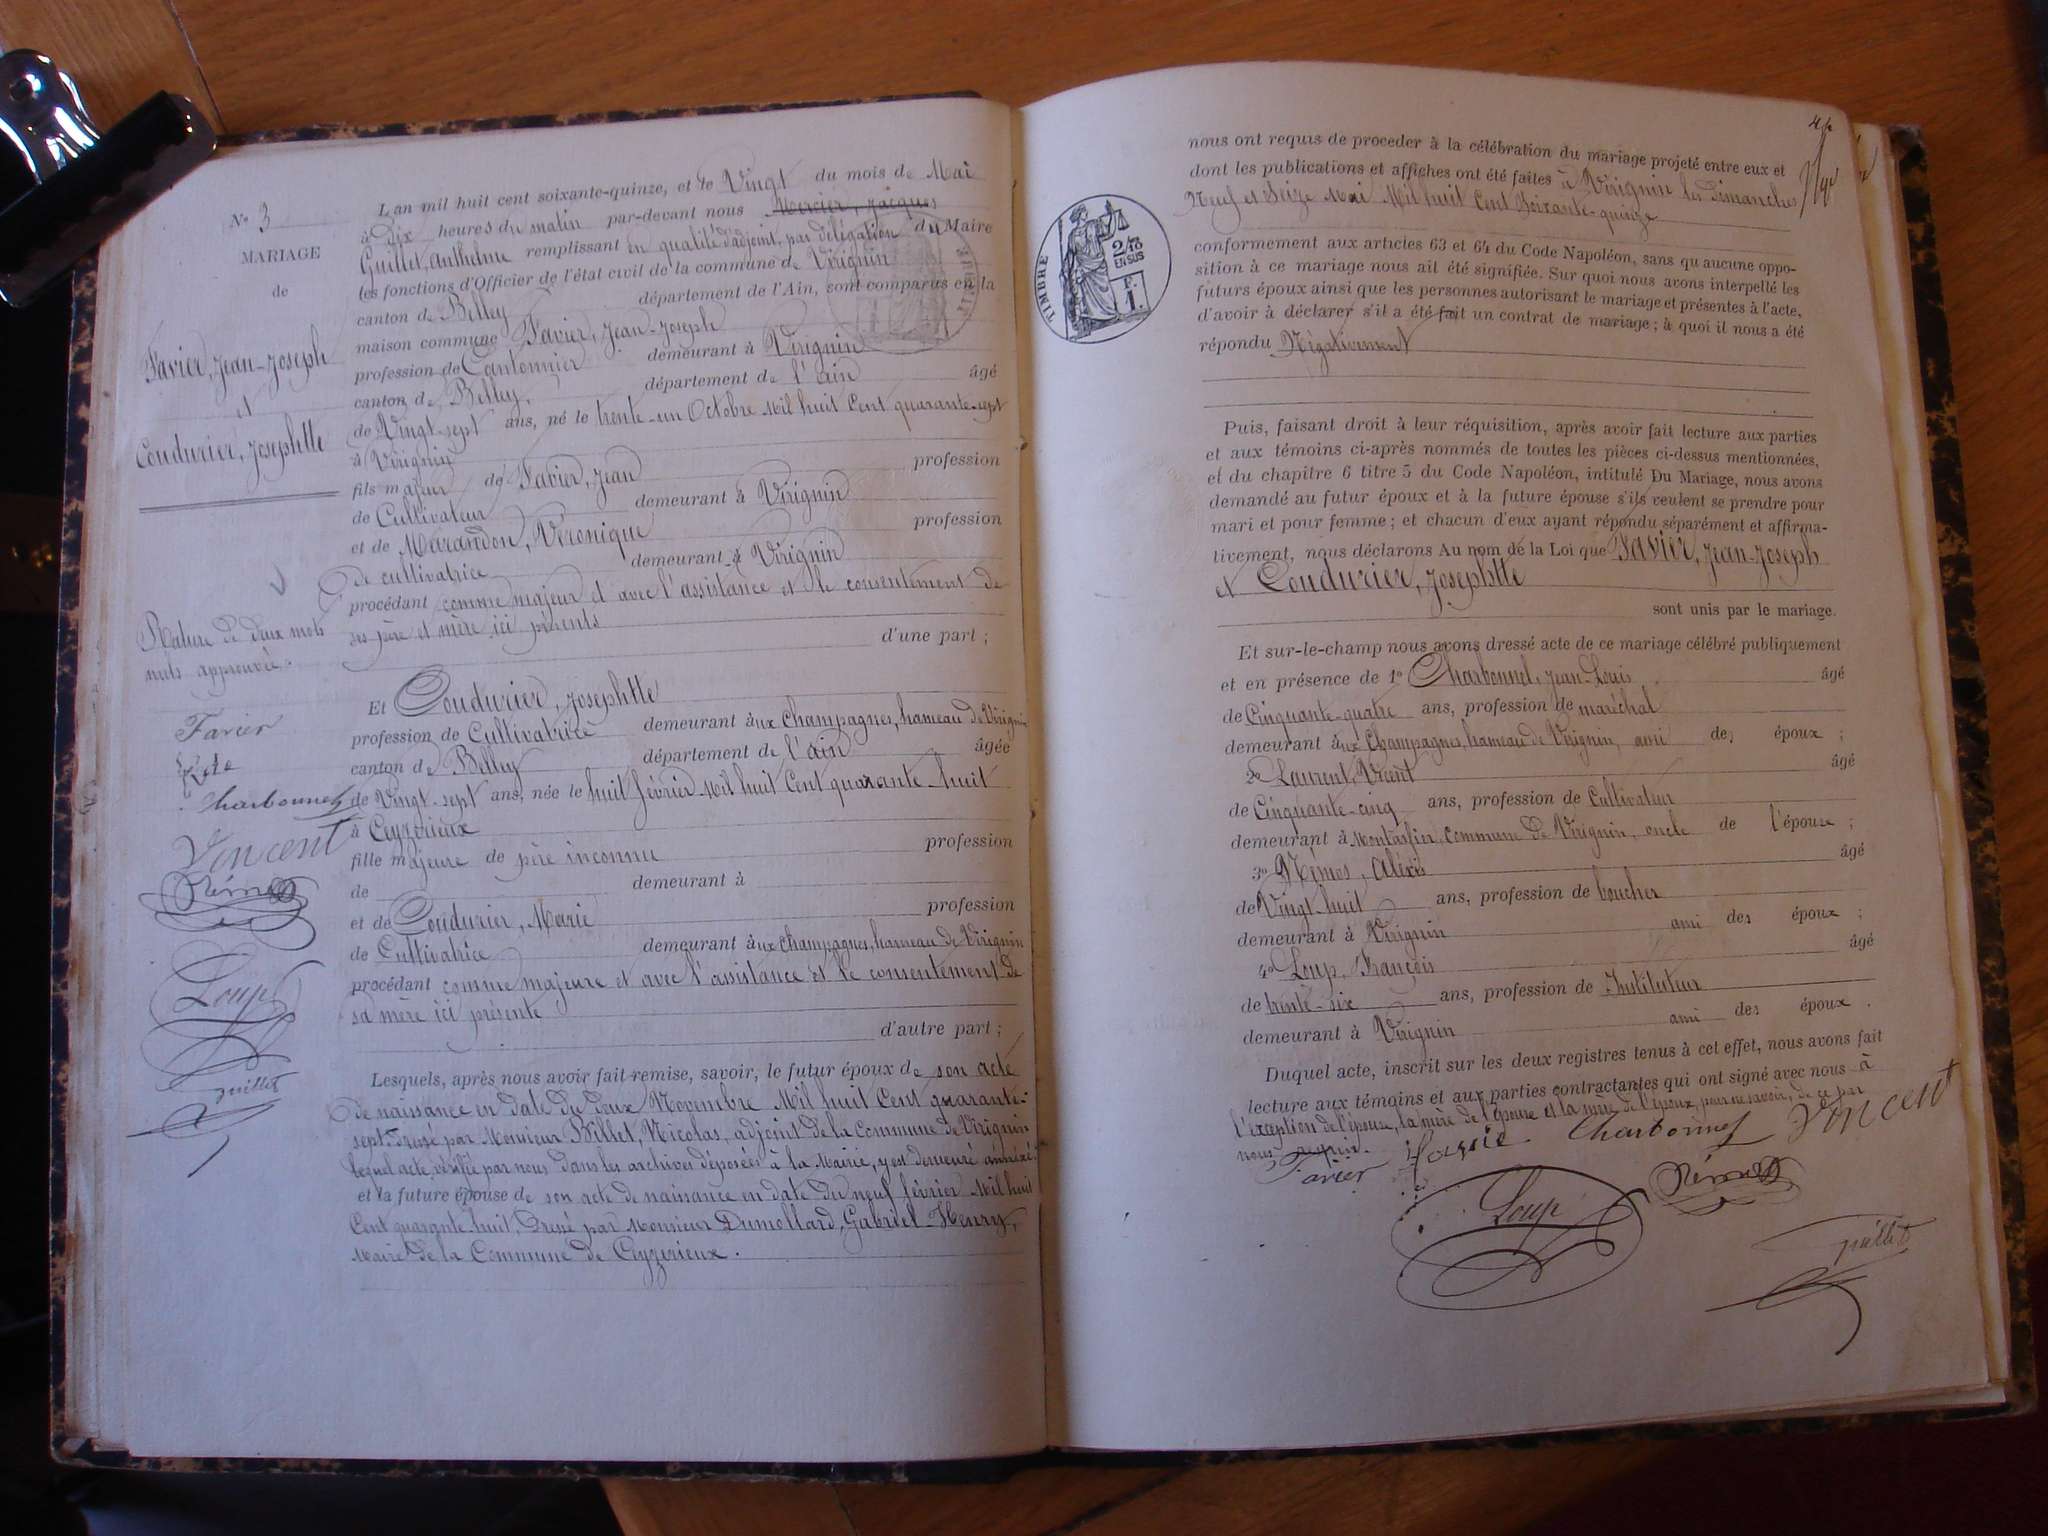 N° 3
MARIAGE
de
Favier, Jean-Joseph
et
Coudurier, Josephtte
Rature de deux mots
nuls approuvée.
Favier
Charbonnel
Vincent
Némoz
Loup
guillet
L'an mil huit cent soixante-quinze, et le Vingt du mois de Mai
à Dix heures du matin par-devant nous Mercier, Jacques
Guillet, anthelme remplissant en qualité d'adjoint, par délégation du Maire
les fonctions d'Officier de l'état civil de la commune de Virignin
canton de Belley département de l'Ain, sont comparus en la
maison commune Favier, Jean-Joseph
profession de Cantonnier demeurant à Virignin
canton de Belley, département de l'ain âgé
de Vingt-sept ans, né le trente-un Octobre Mil huit Cent quarante-sept
à Virignin
fils majeur de Favier, Jean profession
de Cultivateur demeurant à Virignin
et de Marandon, Véronique profession
de cultivatrice demeurant à Virignin
procédant comme majeur et avec l'assistance et le consentement de
ses père et mère ici présents d'une part ;
Et Coudurier, Josephtte
profession de Cultivatrice demeurant aux Champagnes, hameau de Virignin
canton de Belley département de l'ain âgée
de Vingt-sept ans, née le huit février Mil huit Cent quarante-huit
à Ceyzerieux
fille majeure de père inconnu profession
de demeurant à
et de Coudurier, Marie profession
de Cultivatrice demeurant aux Champagnes, hameau de Virignin
procédant comme majeure et avec l'assistance et le consentement de
sa mère ici présente
d'autre part ;
Lesquels, après nous avoir fait remise, savoir, le futur époux de son acte
de naissance en date du deux Novembre Mil huit Cent quarante-
sept. Dressé par Monsieur Billet, Nicolas, adjoint de la Commune de Virignin
lequel acte, vérifié par nous dans les archives déposées à la Mairie, y est demeuré annexé.
et la future épouse de son acte de naissance en date du neuf février Mil huit
Cent quarante huit, Dressé par Monsieur Dumollard, Gabriel-Henry,
Maire de la Commune de Ceyzerieux.
TIMBRE
2/10
EN SUS
F.
1.
nous ont requis de proceder à la célébration du mariage projeté entre eux et
dont les publications et affiches ont été faites à Virignin les dimanches
Neuf et Seize Mai Mil huit Cent Soixante-quinze
conformement aux articles 63 et 64 du Code Napoléon, sans qu'aucune oppo-
sition à ce mariage nous ait été signifiée. Sur quoi nous avons interpellé les
futurs époux ainsi que les personnes autorisant le mariage et présentes à l'acte,
d'avoir à déclarer s'il a été fait un contrat de mariage ; à quoi il nous a été
répondu Négativement
Puis, faisant droit à leur réquisition, après avoir fait lecture aux parties
et aux témoins ci-après nommés de toutes les pièces ci-dessus mentionnées,
et du chapitre 6 titre 5 du Code Napoléon, intitulé Du Mariage, nous avons
demandé au futur époux et à la future épouse s'ils veulent se prendre pour
mari et pour femme ; et chacun d'eux ayant répondu séparément et affirma-
tivement, nous déclarons Au nom de la Loi que Favier, Jean-Joseph
et Coudurier, Josephtte
sont unis par le mariage.
Et sur-le-champ nous avons dressé acte de ce mariage célébré publiquement
et en présence de 1° Charbonnel, Jean-Louis âgé
de Cinquante-quatre ans, profession de maréchal
demeurant aux Champagnes, hameau de Virignin, ami des époux ;
2° Laurent, Vincent âgé
de Cinquante-cinq ans, profession de Cultivateur
demeurant à Montarfin, commune de Virignin, oncle de l'épouse ;
3° Némos, Aléxis âgé
de Vingt-huit ans, profession de boucher
demeurant à Virignin ami des époux ;
4° Loup, François âgé
de trente-six ans, profession de Instituteur
demeurant à Virignin ami des époux.
Duquel acte, inscrit sur les deux registres tenus à cet effet, nous avons fait
lecture aux témoins et aux parties contractantes qui ont signé avec nous à
l'exception de l'épouse, la mère de l'épouse et la mère de l'époux, pour ne savoir, de ce par
nous requis.
Favier Charbonnel Vincent
Loup Némoz
guillet